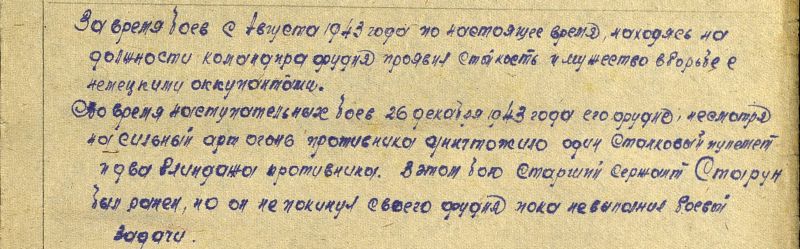 За время боев с Августа 1943 года по настоящее время, находясь на
должности командира орудия проявил стойкость и мужество в борьбе с
немецкими оккупантами.
Во время наступательных боев 26 декабря 1943 года его орудие, несмотря
на сильный арт огонь противника уничтожило один станковый пулемет
и два блиндажа противника. В этом бою Старший Сержант Старун
был ранен, но он не покинул своего орудия пока не выполнил боевой
задачи.